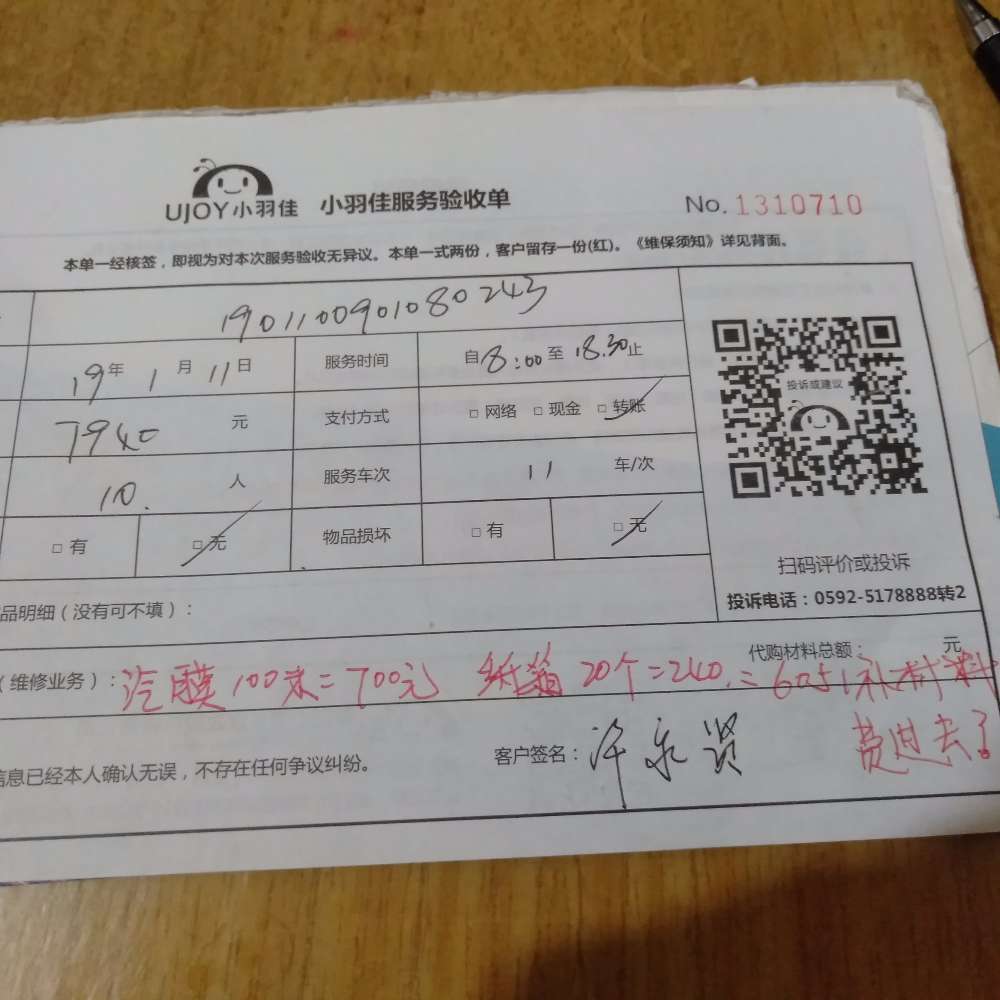 UJOY小羽佳 小羽佳服务验收单 No.1310710
本单一经核签，即视为对本次服务验收无异议。本单一式两份，客户留存一份(红)。《维保须知》详见背面。
1901100901080243
19年 1月 11日 服务时间 自8:00至18.30止
7940 元 支付方式 □ 网络 □ 现金 □ 转账
投诉或建议
10. 人 服务车次 11 车/次
□ 有 □ 无 物品损坏 □ 有 □ 无
扫码评价或投诉
投诉电话：0592-5178888转2
品明细（没有可不填）：
代购材料总额： 元
（维修业务）： 膜100米=700元 纸箱20个=240.= 补材料
费过去了
信息已经本人确认无误，不存在任何争议纠纷。 客户签名：许永贤